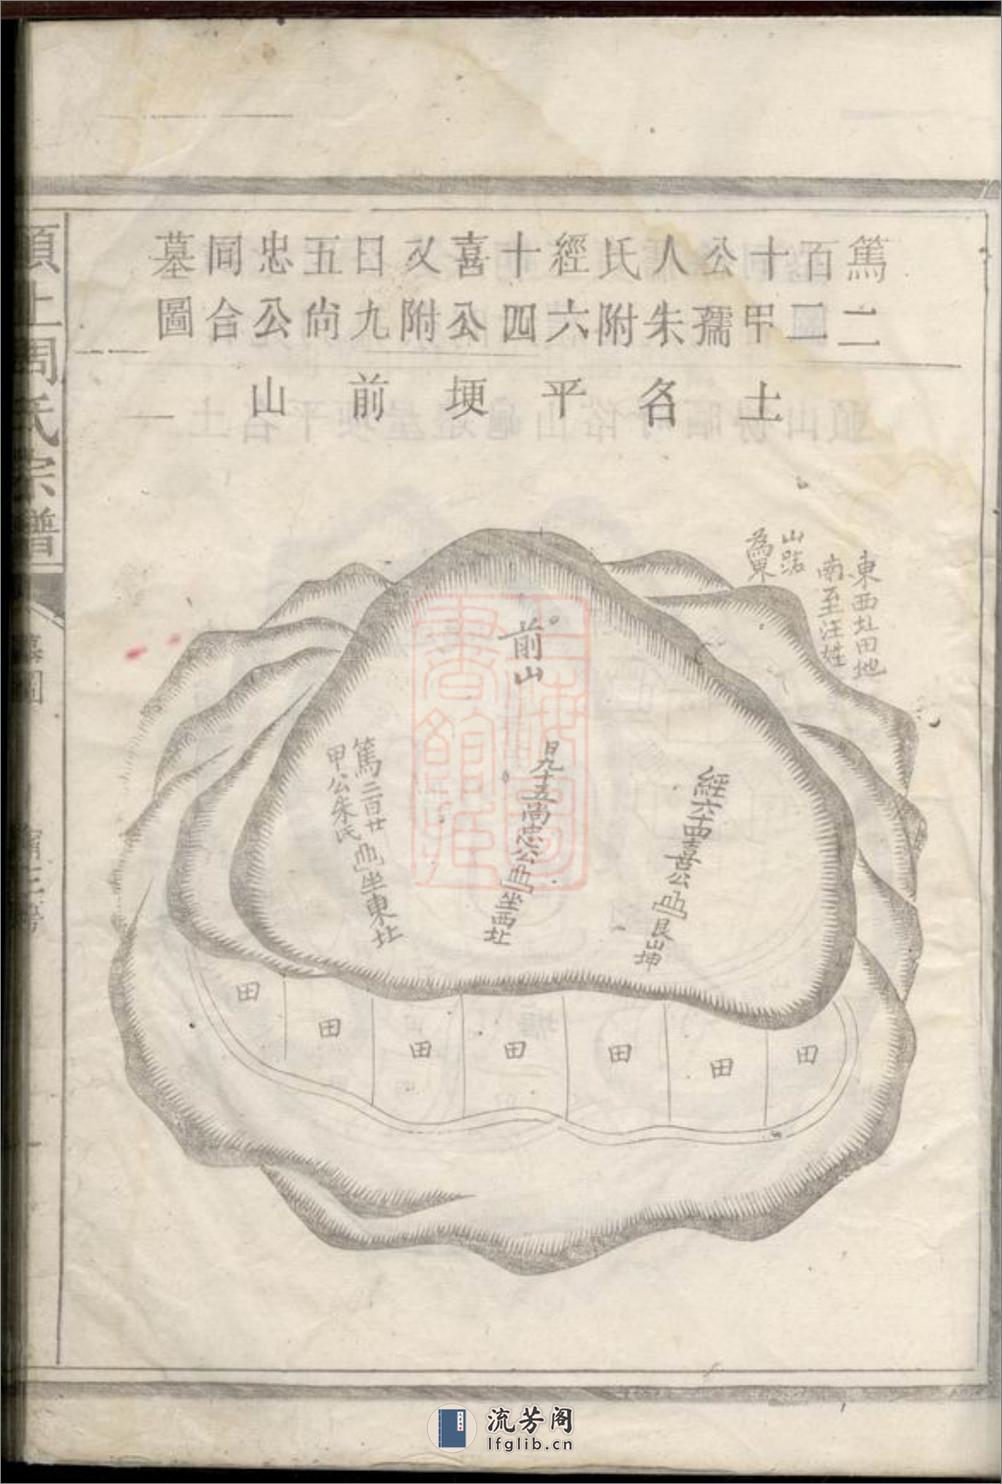 篤二
百二
十甲
公孺
人朱
氏附
經六
十四
喜公
又附
日九
五尚
忠公
同合
墓圖
土名平埂前山
東西北田地
南至汪姓
山路
為界
前山
經六十四喜公 艮山坤
見九十五尚忠公 坐西北
篤二百廿
甲公朱氏 坐東北
田
田
田
田
田
田
田
上周氏宗譜
墓圖
上海圖
書館藏
流芳阁
lfglib.cn